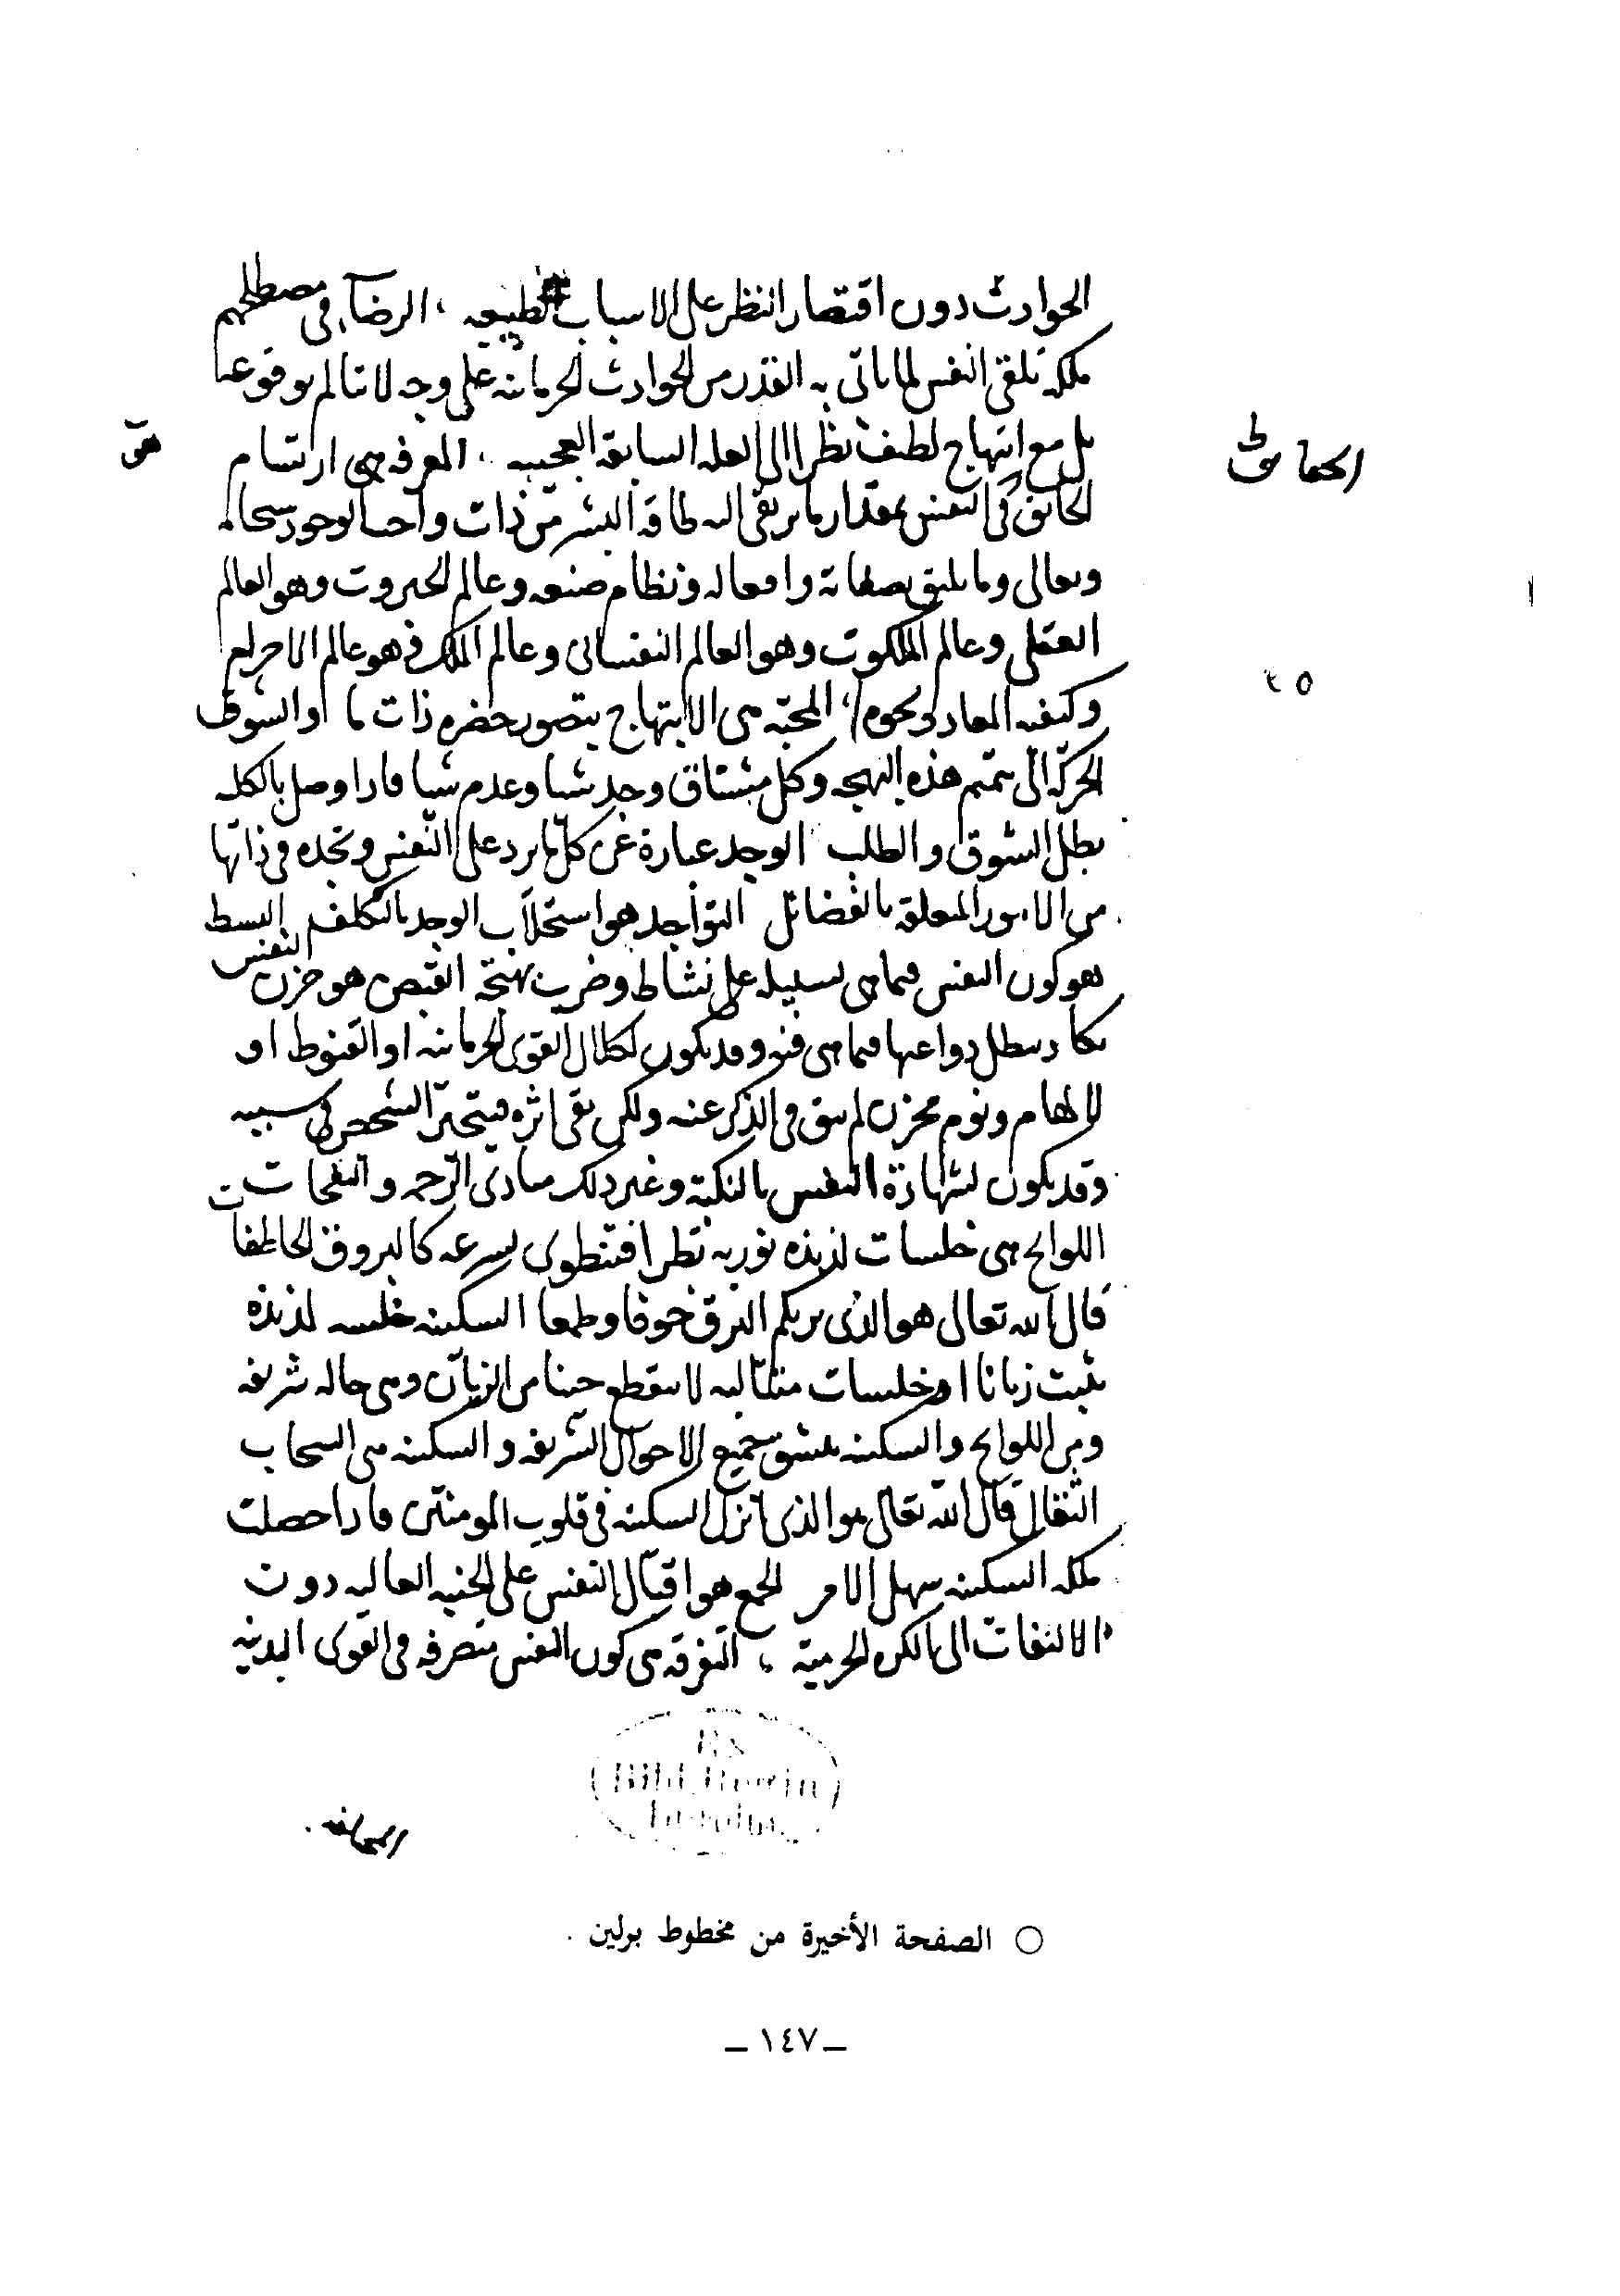 الحوادث دون اقتصار النظر على الاسباب الطبيعه ، الرضا فى مصطلحهم
ملكة تلقى النفس لما ياتى به القدر من الحوادث الجرمانيه على وجه لا تتالم بوقوعها
بل مع ابتهاج لطيف نظرا الى العله السابقة العجيبه ، المعرفه هى ارتسام
الحقائق فى النفس بمقدار ما يرتقى اليه طاقة البشر من ذات واجب الوجود سبحانه
وتعالى وما يليق بصفاته وافعاله ونظام صنعه وعالم الجبروت وهو العالم
العقلى وعالم الملكوت وهو العالم النفسانى وعالم الملك وهو عالم الاجرام
وكيفيه المعاد ونحوها ، المحبّه هى الابتهاج بتصور حضره ذات ما او الشوق
الحركة الى تتميم هذه البهجه وكل مشتاق وجد شيا وعدم شيا فاذا وصل بالكليه
بطل الشوق والطلب الوجد عبارة عن كل ما يرد على النفس وتجده فى ذاتها
من الامور المتعلقه بالفضائل التواجد هو استجلاب الوجد بالتكلف البسط
هو كون النفس فيما هى بسبيله على نشاط وضرب بهجة القبض هو حزن النفس
يكاد يبطل دواعيها فيما هى فيه وقد يكون لكلال القوى الجرمانيه او القنوط او
لالهام ونوم محزن لم يبق فى الذكر عنه ولكن بقى اثره فيتحير الشخص فى سببه
وقد يكون لشهادة النفس بالنكبة وغير ذلك مبادى الرحمه والنفحات
اللوائح هى خلسات لذيذه نوريه تطرا فتنطوى بسرعه كالبروق الخاطفات
قال الله تعالى هو الذى يريكم البرق خوفا وطمعا السكينه خلسه لذيذه
تثبت زمانا او خلسات متتاليه لا تنقطع حينا من الزمان وهى حاله شريفه
ومن اللوائح والسكينه ينشق جميع الاحوال الشريفه والسكينه هى السحاب
الثقال قال الله تعالى هو الذى انزل السكينه فى قلوب المومنين فاذا حصلت
ملكه السكينه سهل الامر الجمع هو اقبال النفس على الجنبه العاليه دون
الالتفات الى الكره الجرمية ، التفرقه هى كون النفس متصرفه فى القوى البدنيه
○ الصفحة الأخيرة من مخطوط برلين .
ـ ١٤٧ ـ